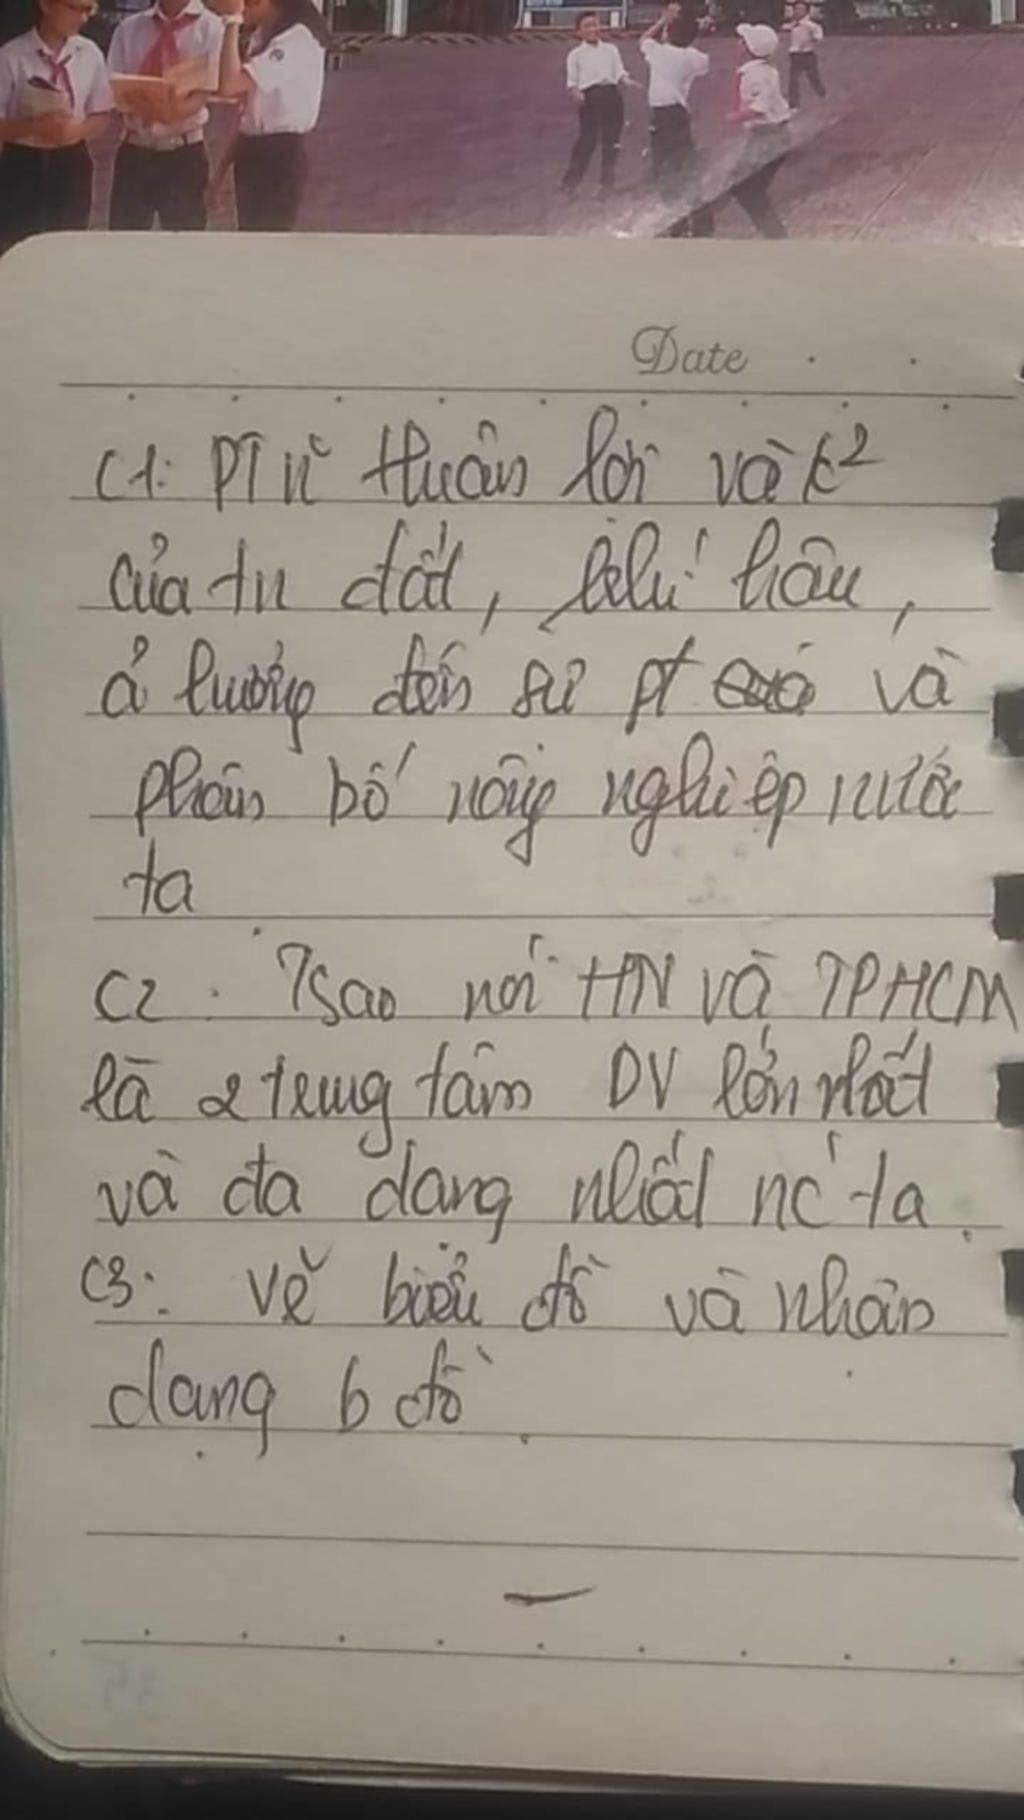 Date
C1: PT về thuận lợi và k²
của tn đất, khí hậu,
ả hưởng đến sự pt và
phân bố nông nghiệp nước
ta
C2: Tsao nói HN và TPHCM
là 2 trung tâm DV lớn nhất
và đa dạng nhất nc ta.
C3: Vẽ biểu đồ và nhận
dạng b đồ